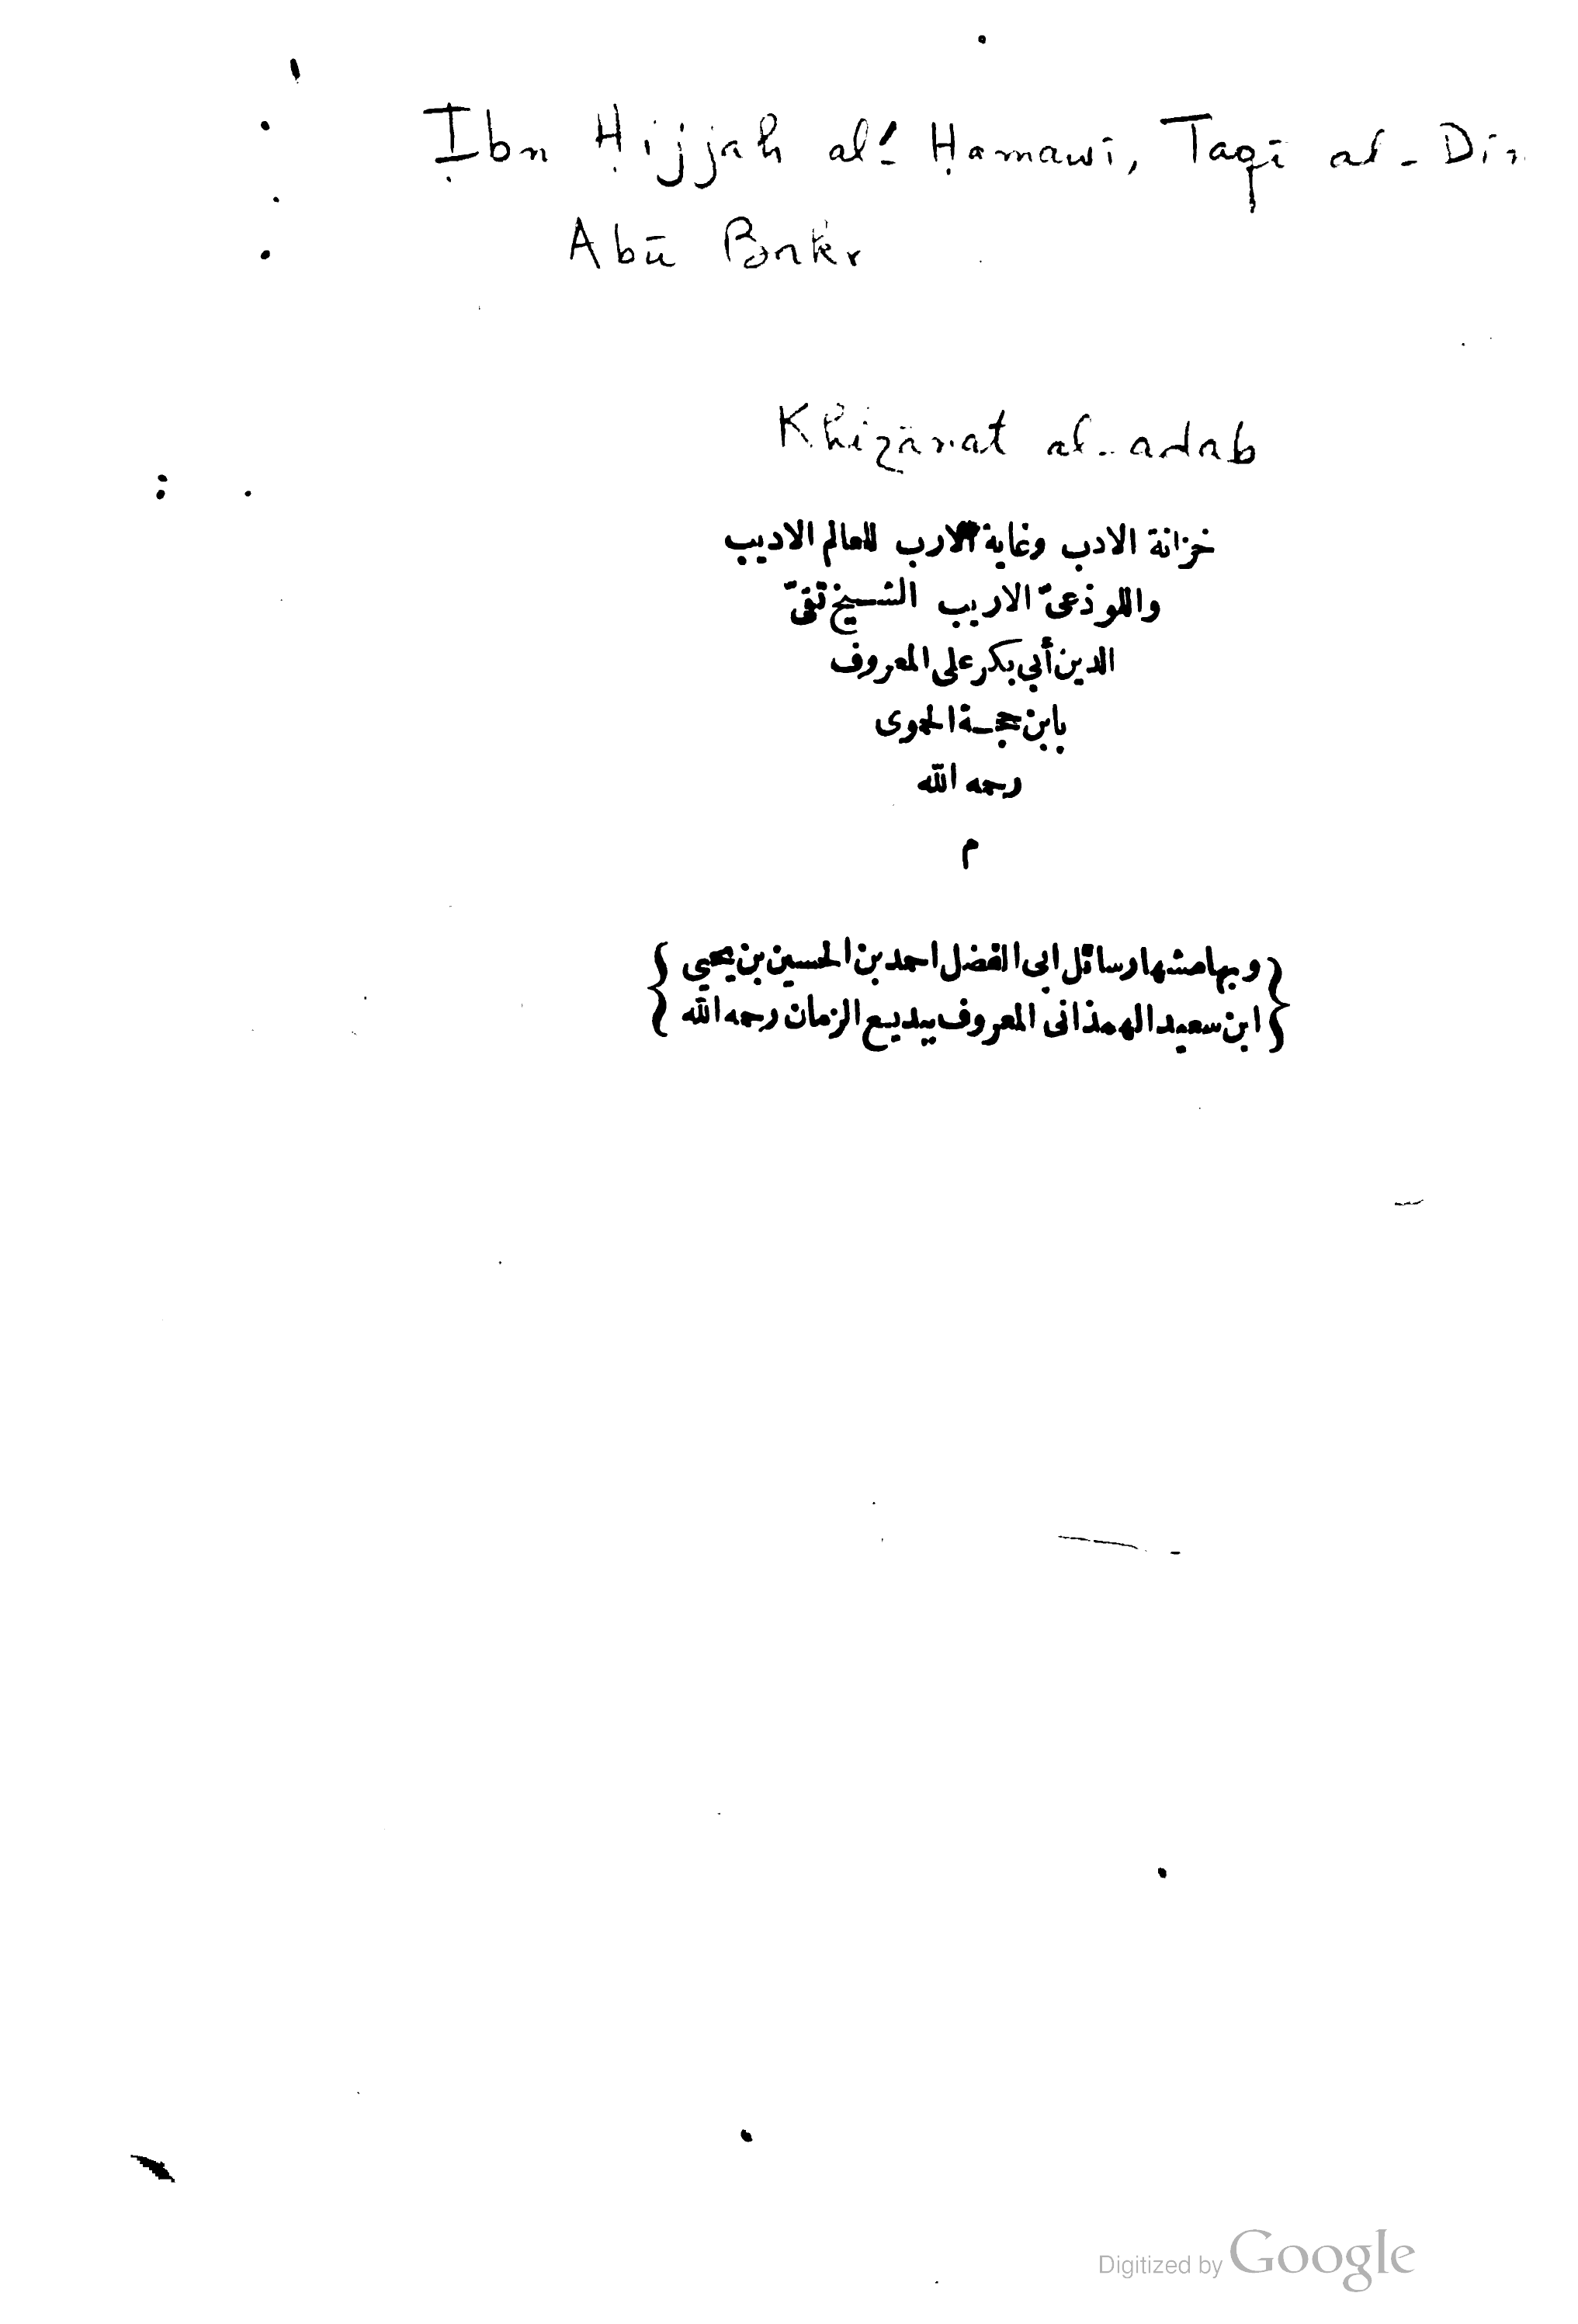 Ibn Ḥijjah al-Ḥamawī, Taqī al-Din
Abū Bakr
Khizānat al-adab
خزانة الادب وغاية الارب للعالم الاديب
واللوذعىّ الاريب الشيخ تقىّ
الدين أبي بكر على المعروف
بابن حجة الحموى
رحمه الله
م
{وبهامشها رسائل ابى الفضل احمد بن الحسين بن يحيى}
{ابن سعيد الهمذانى المعروف ببديع الزمان رحمه الله}
Digitized by Google